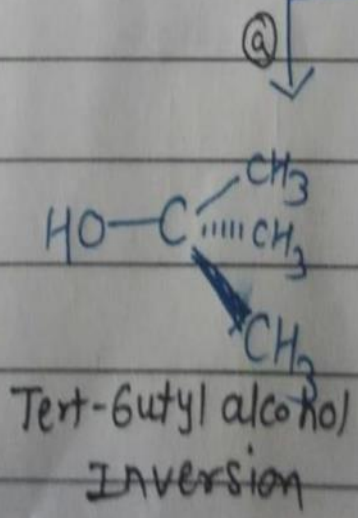 a
CH3
HO-C CH3
CH3
Tert-butyl alcohol
Inversion